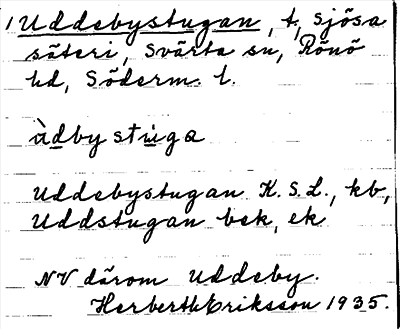 1 Uddebystugan, t, Sjösa
säteri, Svärta sn, Rönö
hd, Söderm. l.
ùdbystùga
Uddebystugan K. S. L., kb,
Uddstugan bek, ek
NV därom Uddeby.
Herbert Eriksson 1935.